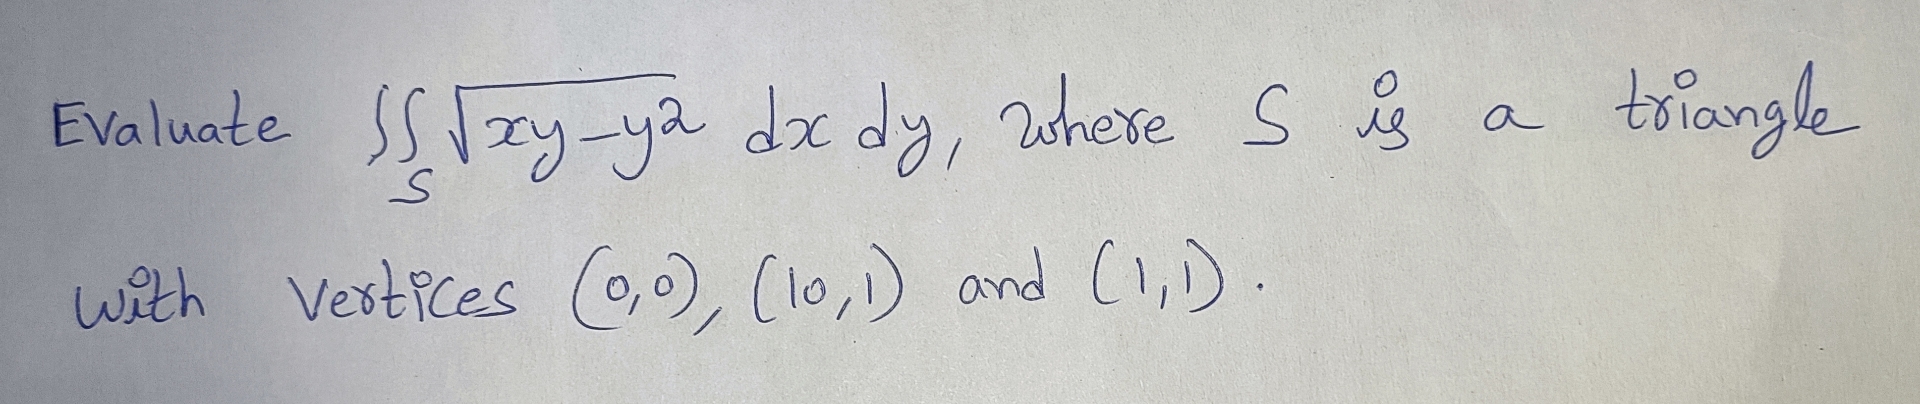 Evaluate ∬_S √(xy-y²) dx dy, where S is a triangle
with vertices (0,0), (10,1) and (1,1).